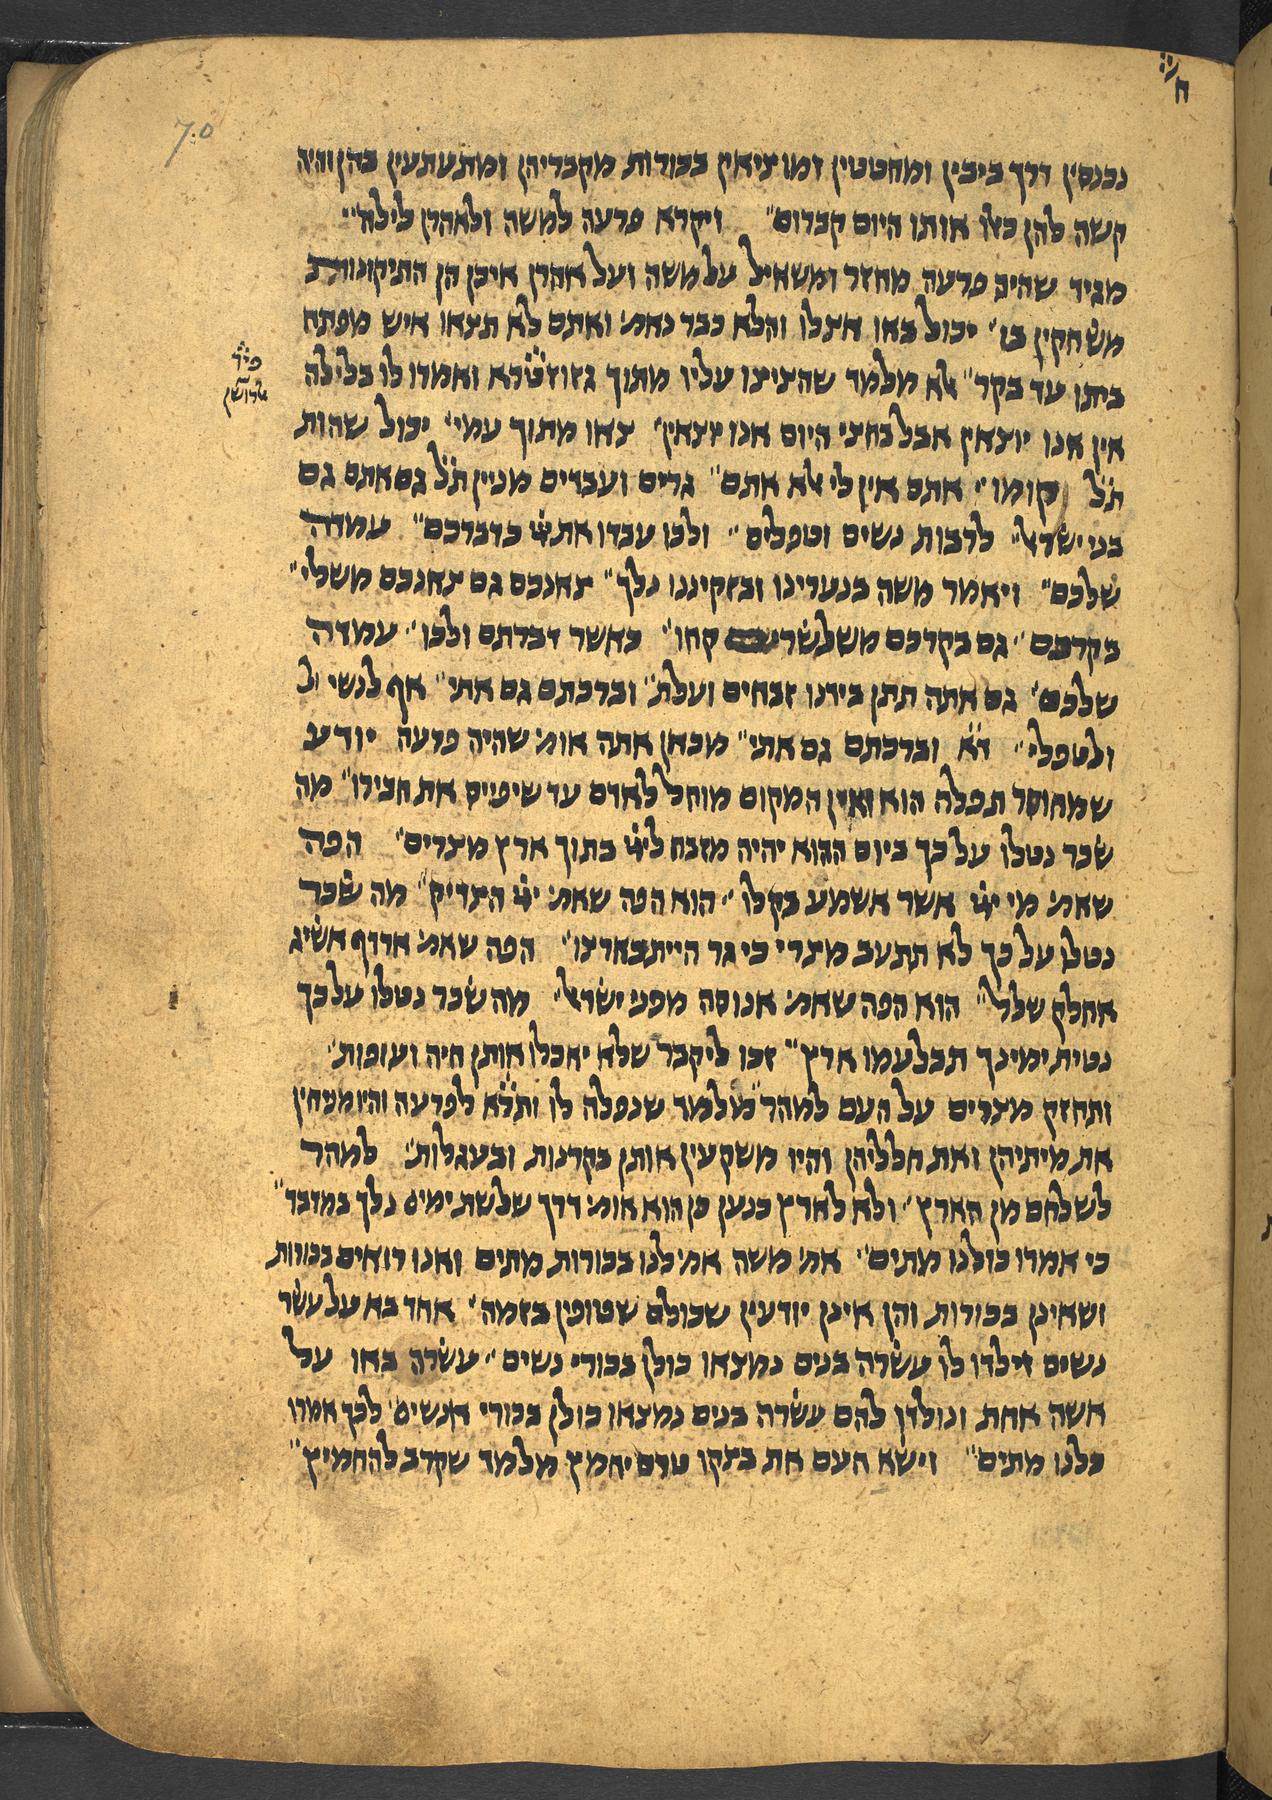 70
נכנסין דרך ביבין ומחטטין ומוציאין בכורות מקבריהן ומתעתעין בהן והיה
קשה להן כאלו אותו היום קברום" ויקרא פרעה למשה ולאהרן לילה"
מגיד שהיה פרעה מחזר ומשאיל על משה ועל אהרן איכן הן התינוקות
משחקין בו' יכול באו אצלו והלא כבר נאמ' ואתם לא תצאו איש מפתח
ביתו עד בקר" אלא מלמד שהציצו עליו מתוך גזוזטרא ואמרו לו בלילה
אין אנו יוצאין אבל בחצי היום אנו יוצאין' צאו מתוך עמי' יכול שהות
ת"ל קומו' אתם אין לי אלא אתם" גרים ועבדים מניין ת"ל גם אתם גם
בני ישראל" לרבות נשים וטפלים" ולכו עבדו את ייי כדברכם" עמדה
שלכם" ויאמר משה בנערינו ובזקיננו נלך" צאנכם גם צאנכם משלי"
בקרכם' גם בקרכם משלשרי קחו' כאשר דברתם ולכו' עמדה
שלכם' גם אתה תתן בידנו זבחים ועלת" וברכתם גם אתי" אף לנשי ול
ולטפלי" ד"א וברכתם גם אתי" מכאן אתה אומ' שהיה פרעה יודע
שמחוסר תפלה הוא ואין המקום מוחל לאדם עד שיפייס את חבירו" מה
שכר נטלו על כך ביום ההוא יהיה מזבח לייי בתוך ארץ מצרים' הפה
שאמ' מי ייי אשר אשמע בקלו' הוא הפה שאמ' ייי הצדיק" מה שכר
נטלו על כך לא תתעב מצרי כי גר היית בארצו' הפה שאמ' ארדף אשיג
אחלק שלל" הוא הפה שאמ' אנוסה מפני ישראל" מה שכר נטלו על כך
נטית ימינך תבלעמו ארץ" זכו ליקבר שלא יאכלו אותן חיה ועופות'
ותחזק מצרים על העם למהר" מלמד שנפלה לו ותלא לפרעה והיו מניחין
את מיתיהן ואת חלליהן והיו משקעין אותן בקרנות ובעגלות' למהר
לשלחם מן הארץ' ולא לארץ כנען כן הוא אומ' דרך שלשת ימים נלך במדבר"
כי אמרו כולנו מתים' אמ' משה אמ' לנו בכורות מתים ואנו רואים בכורות
ושאינן בכורות והן אינן יודעין שכולם שטופין בזמה' אחד בא על עשר
נשים וילדו לו עשרה בנים נמצאו כולן בכורי נשים' עשרה באו על
אשה אחת ונולדו להם עשרה בנים נמצאו כולן בכורי אנשים' לכך אמרו
כלנו מתים" וישא העם את בצקו טרם יחמץ מלמד שקרב להחמיץ"